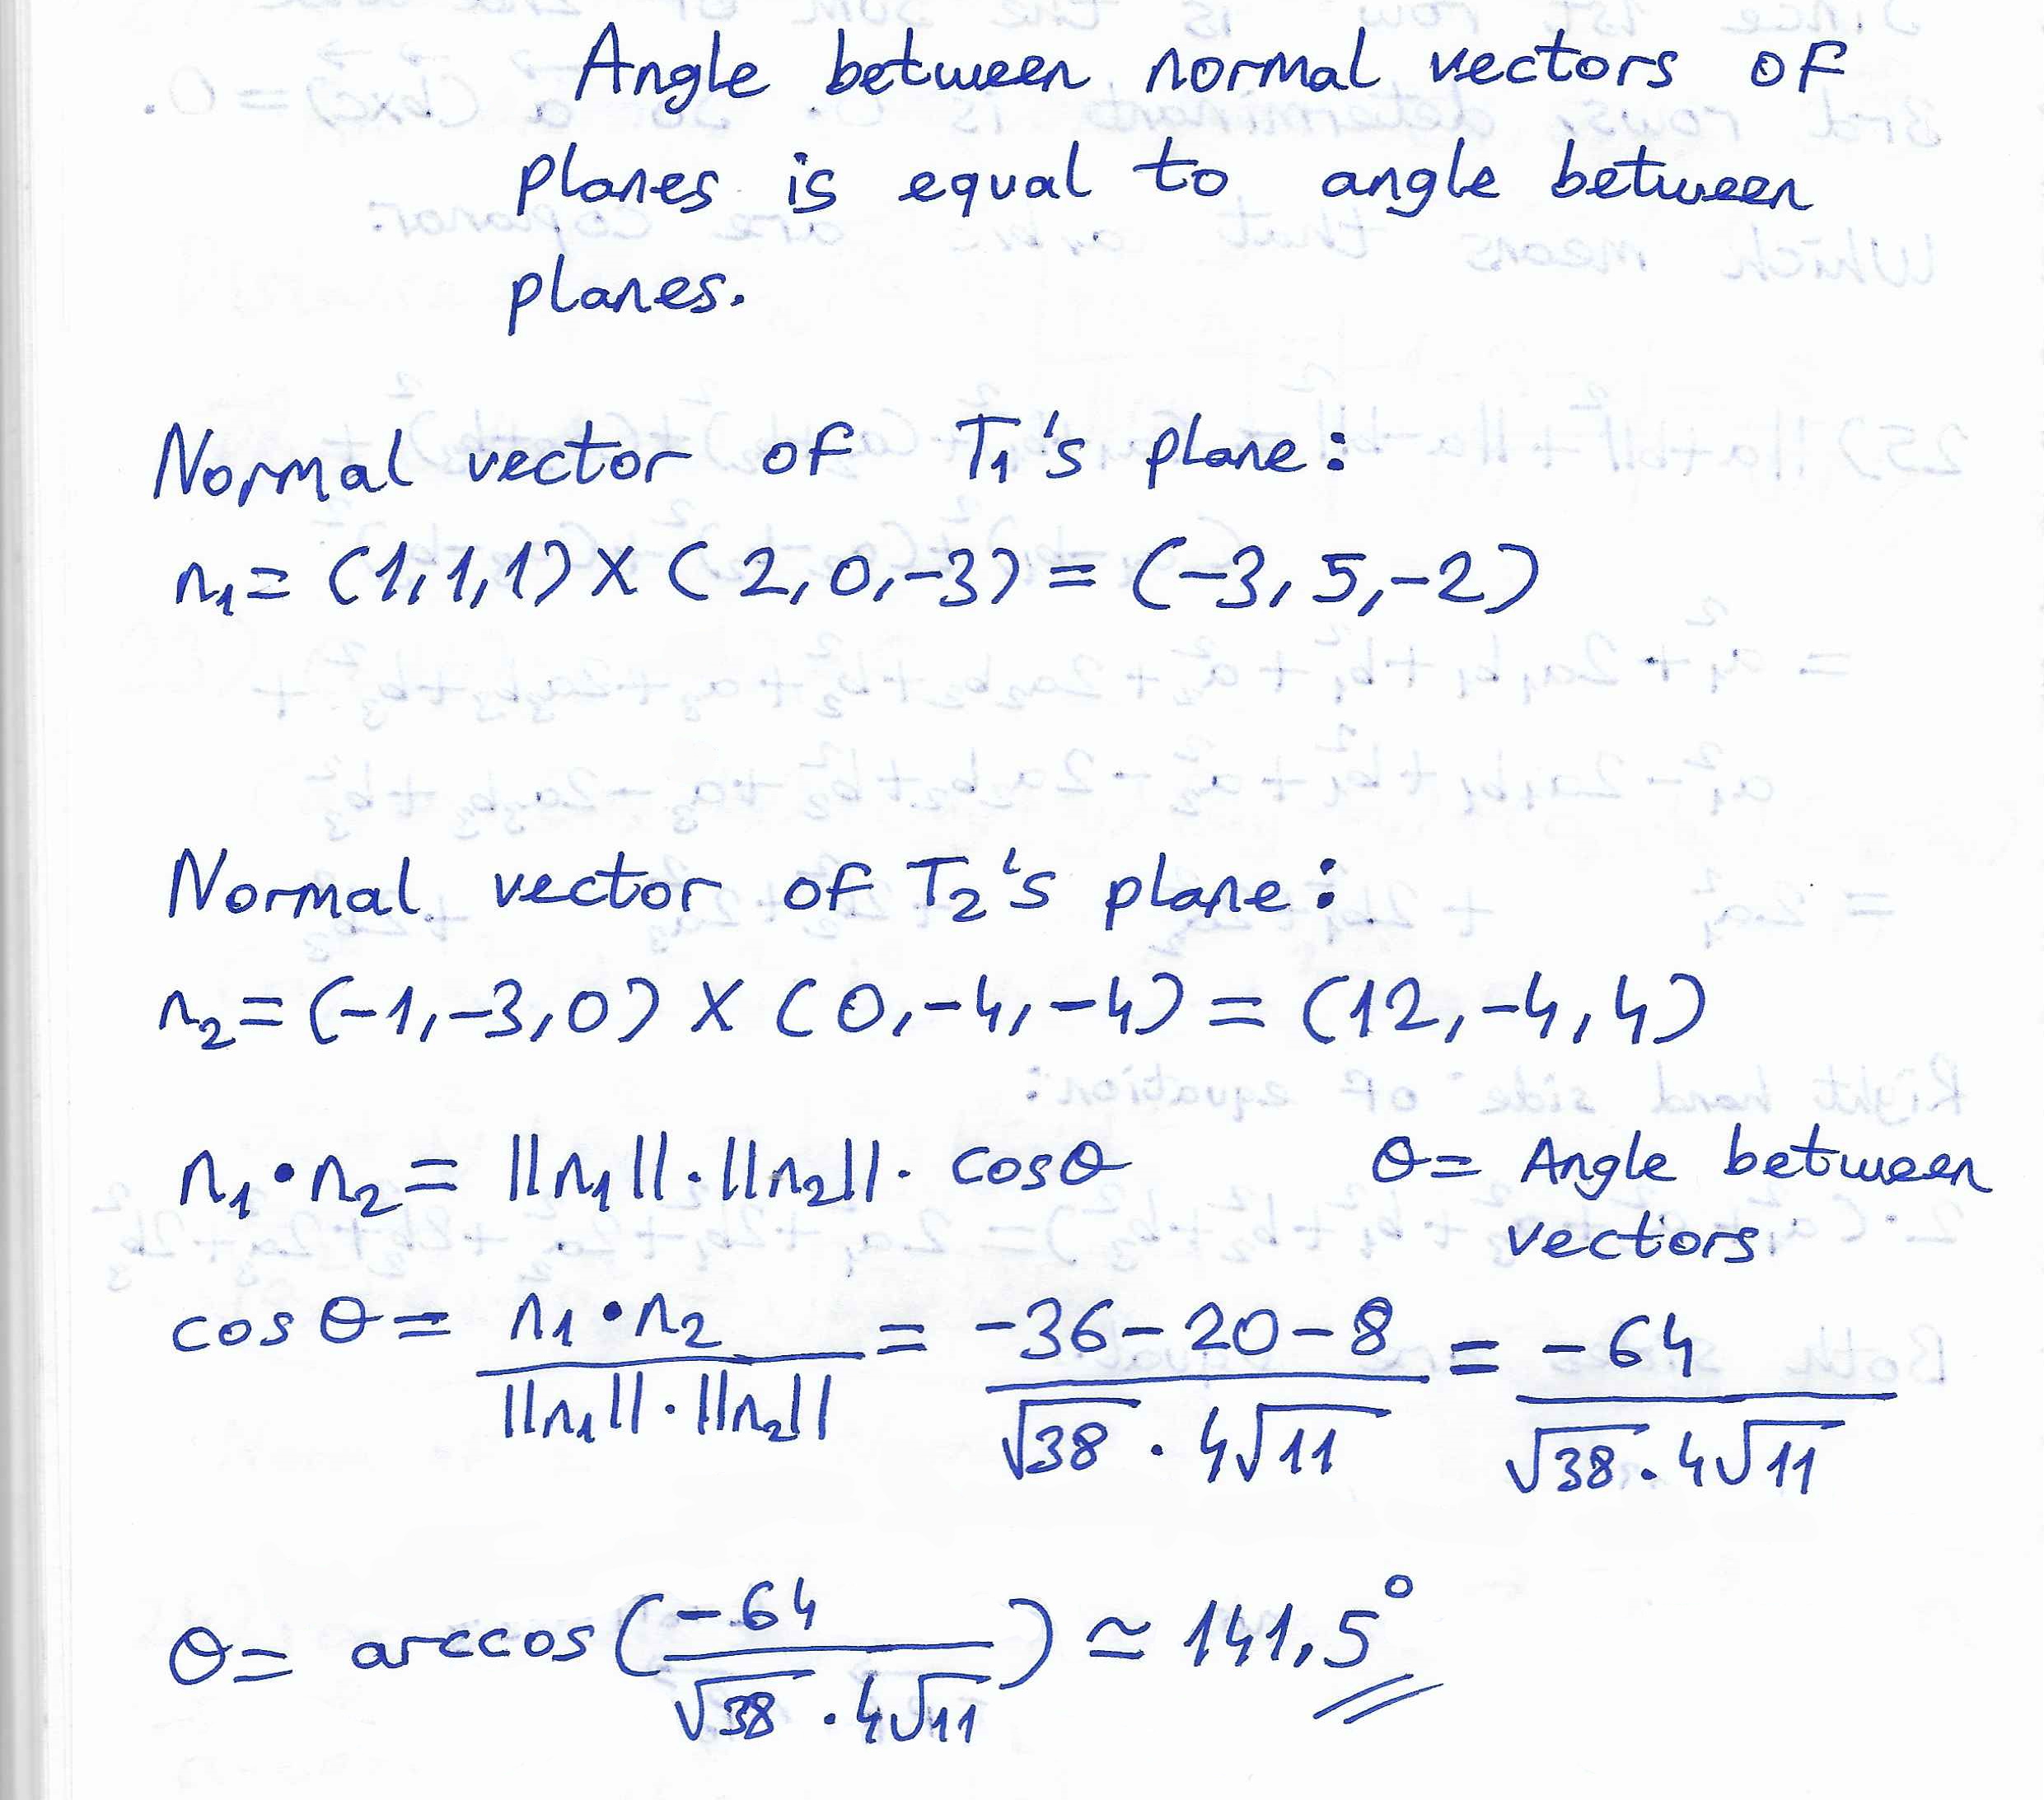 Angle between normal vectors of
planes is equal to angle between
planes.
Normal vector of T₁'s plane:
n₁= (1,1,1) X (2,0,-3) = (-3,5,-2)
Normal vector of T₂'s plane:
n₂= (-1,-3,0) X (0,-4,-4) = (12,-4,4)
n₁•n₂= ||n₁||.||n₂||. cosθ θ= Angle between
vectors
cos θ= n₁•n₂ / ||n₁||.||n₂|| = -36-20-8 / √38 . 4√11 = -64 / √38 . 4√11
θ= arccos(-64 / √38 . 4√11) ≃ 141,5°